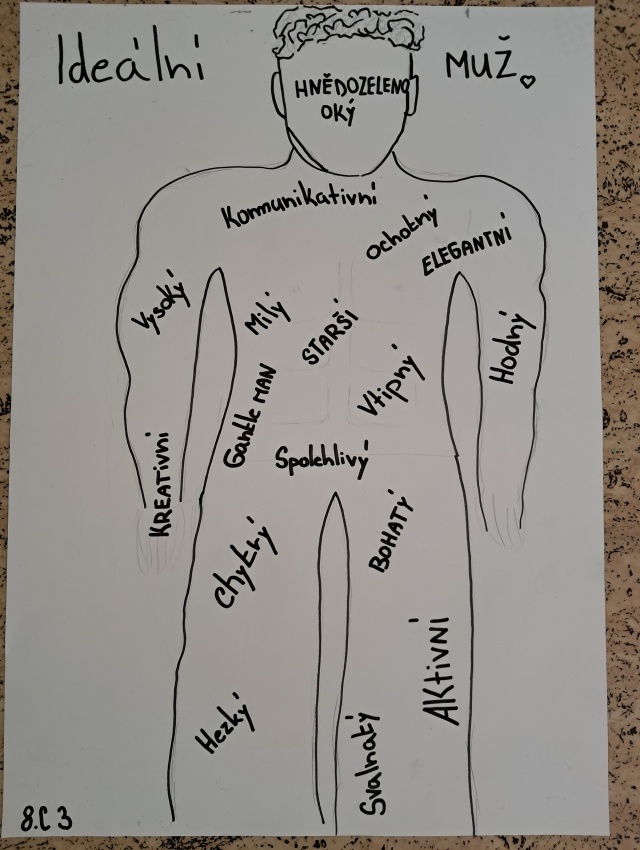 Ideální
MUŽ
HNĚDOZELENO
OKÝ
Komunikativní
Ochotný
ELEGANTNÍ
Vysoký
Milý
STARŠÍ
Hodný
Vtipný
GantleMAN
KREATIVNÍ
Spolehlivý
Chytrý
BOHATÝ
AKtiVNÍ
Hezký
Svalnatý
8.C 3